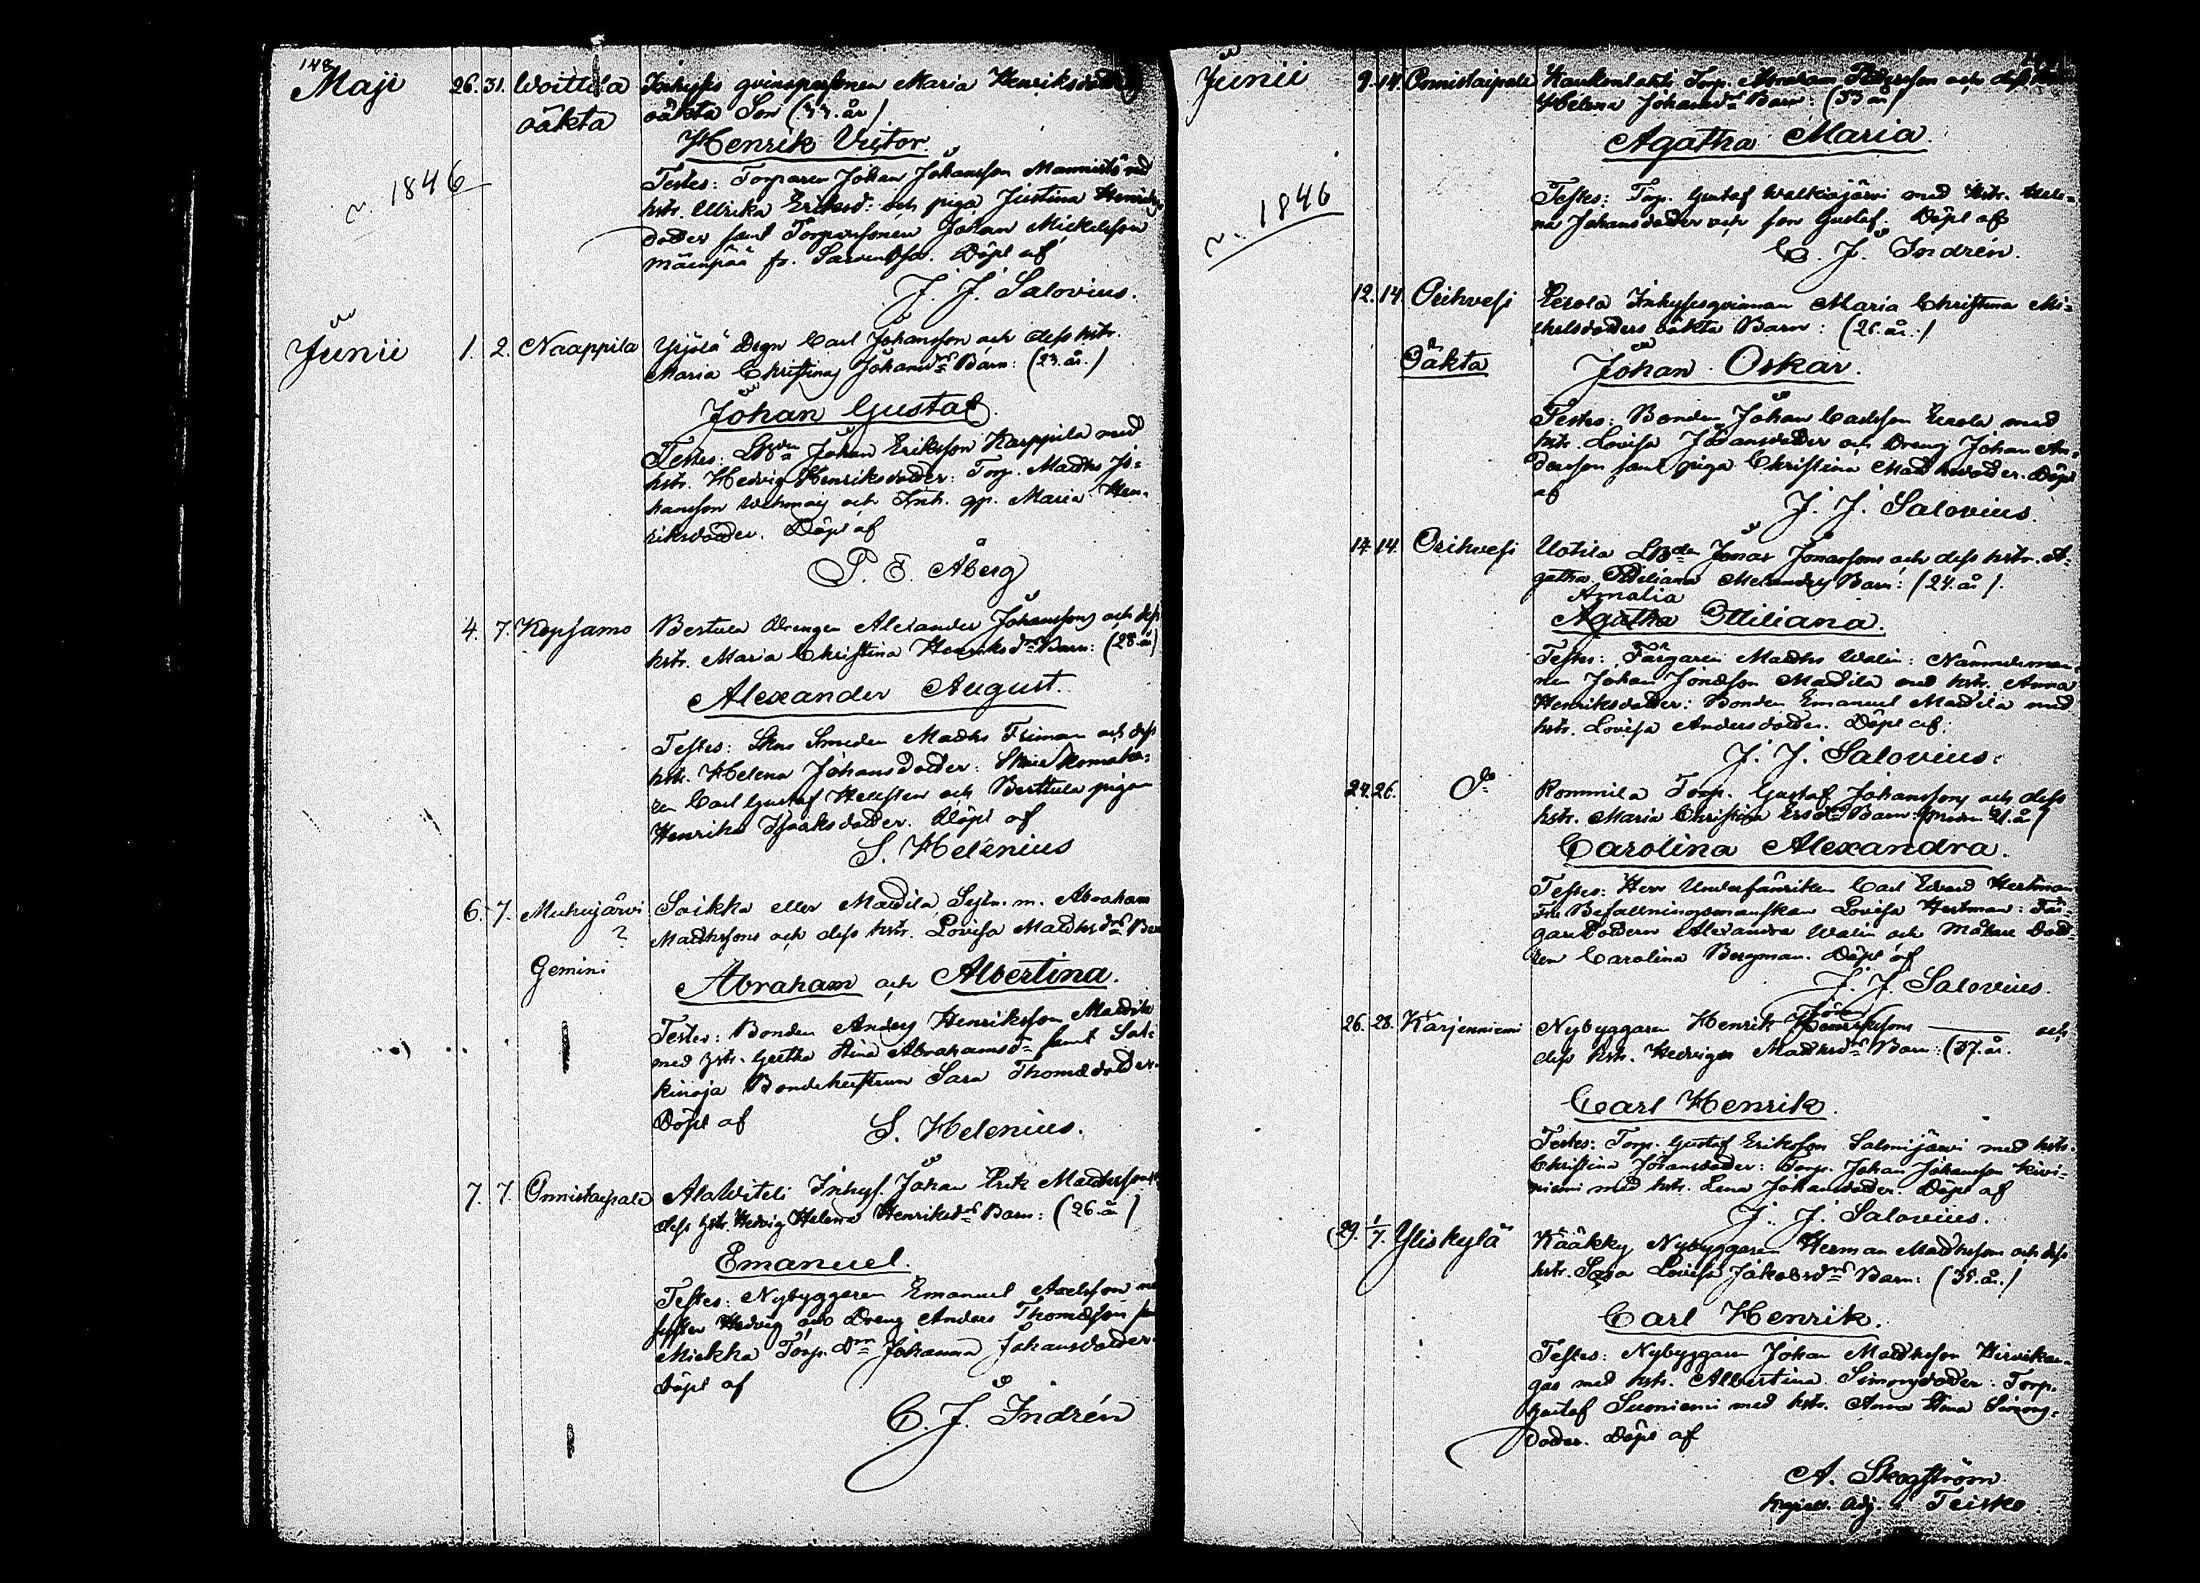 148
Maji 26. 31. Woittila Inhyses qvinspersonen Maria Henriksdotters
oäkta oäkta Son (33. år)
Henrik Victor.
Testes: Torparen Johan Johansson Mannistö med
1846 hstr. Ulrika Eriksd: och piga Justina Henriks
dotter samt Torparesonen Johan Mickelsson
Mäenpää fr. Döpt af
J. J. Salovius.
Junii 1. 2. Naappila Yrjölä Drgn Carl Johansson och dess hstr.
Maria Christinas Johansdrs Barn: (23. år)
Johan Gustaf.
Testes: Johan Eriksson Karppila med
hstr. Hedvig Henriksdotter: Torp. Matths Jo-
hansson och Inh. qp. Maria Hen-
riksdotter. Döpt af
P. E. Åberg
4. 7. Kopsamo Bertula Drengen Alexander Johanssons och dess
hstr. Maria Christina Henriksdrs Barn: (28. år)
Alexander August.
Testes: Smeden Matths Friman och dess
hstr. Helena Johansdotter: Skomaka-
ren Carl Gustaf Hellsten och Berttula pigan
Henrika Isaaksdotter. Döpt af
S. Helenius
6. 7. Muhujärvi Saikka eller Mattila Sytn. m. Abraham
? Matthssons och dess hstr. Lovisa Matthsdrs Barn
Gemini
Abraham och Albertina.
Testes: Bonden Anders Henriksson Mattila
med hstr. Gretha Stina Abrahamsdr samt Sak-
kinoja Bondehustrun Sara Thomædotter.
Döpt af S. Helenius.
7. 7. Onnistaipale AlaWiteli Inhys. Johan Erik Matthssons
dess hstr. Hedvig Helena Henriksdrs Barn: (26. år)
Emanuel.
Testes: Nybyggaren Emanuel Axelsson med
syster Hedvig och Dreng Anders Thomæsson samt
Mickka Torp. Dtr Johanna Johansdotter
Döpt af
C. J. Indrén
Junii 9. 14. Onnistaipale Kaukonlaksi Torp. Abraham och dess
Helena Johansdrs Barn: (33 år)
Agatha Maria.
1846 Testes: Torp. Gustaf Walkiajärvi med hstr. Hele-
na Johansdotter och son Gustaf. Döpt af
C. J. Indrén.
12. 14. Orihvesi Eerola Inhysesqvinnan Maria Christina Mi-
chelsdotters oäkta Barn: (26. år.)
Oäkta Johan Oskar.
Testes: Bonden Johan Carlsson Eerola med
hstr. Lovisa Johansdotter och Dreng Johan An-
dersson samt piga Christina Matthsdotter. Döpt
af
J. J. Salovius.
14. 14. Orihvesi Uotila Jonas Jonassons och dess hstr. A-
gatha Otteliana Barn: (24. år).
Amalia
Agatha Ottiliana.
Testes: Färgaren Matths Walin: Nämndeman-
nen Johan Jonasson Mattila med hstr. Anna
Henriksdotter: Bonden Emanuel Mattila med
hstr. Lovisa Andersdotter. Döpt af:
J. J. Salovius.
24. 26. Do Rommila Torp. Gustaf Johanssons och dess
hstr. Maria Christina Ersdrs Barn: (modren 21. år)
Carolina Alexandra.
Testes: Herr Underfänriken Carl Edvard Hertman
Fru Befallningsmanskan Lovisa Hertman: Fär-
garedottern Alexandra Walin och Målare Dott-
ren Carolina Bergman. Döpt af
J. J. Salovius.
26. 28. Karjenniemi Nybyggaren Henrik Henrikssons och
dess hstr. Hedvigas Matthsdrs Barn: (37. år.
Carl Henrik.
Testes: Torp. Gustaf Eriksson Salmijärvi med hstr.
Christina Johansdotter: Torp. Johan Johansson Kivi-
niemi med hstr. Lena Johansdotter. Döpt af
J. J. Salovius.
(29. 1/7. Yliskylä Kääkky Nybyggaren Herman Matthsson och dess
hstr. Sara Lovisa Jakobsdrs Barn: (35. år.)
Carl Henrik.
Testes: Nybyggaren Johan Matthsson Hirvikan-
gas med hstr. Albertina Simonsdotter: Torp.
Gustaf Suoniemi med hstr. Anna Stina Simons-
dotter. Döpt af
A. Skogström
Kapell. Adj. i Teisko